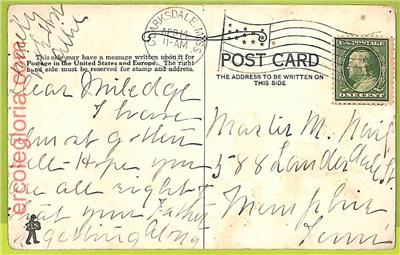 CLARKSDALE, MISS.
11-AM
U.S. POSTAGE
ONE CENT
This side may have a message written upon it for
Postage in the United States and Europe. The right
hand side must be reserved for stamp and address.
POST CARD
THE ADDRESS TO BE WRITTEN ON
THIS SIDE
Dear
I have
almost gotten
well - Hope you
are all right &
that your Father
is getting along
Master M.
588
Memphis
Tenn
ercotegloria.com